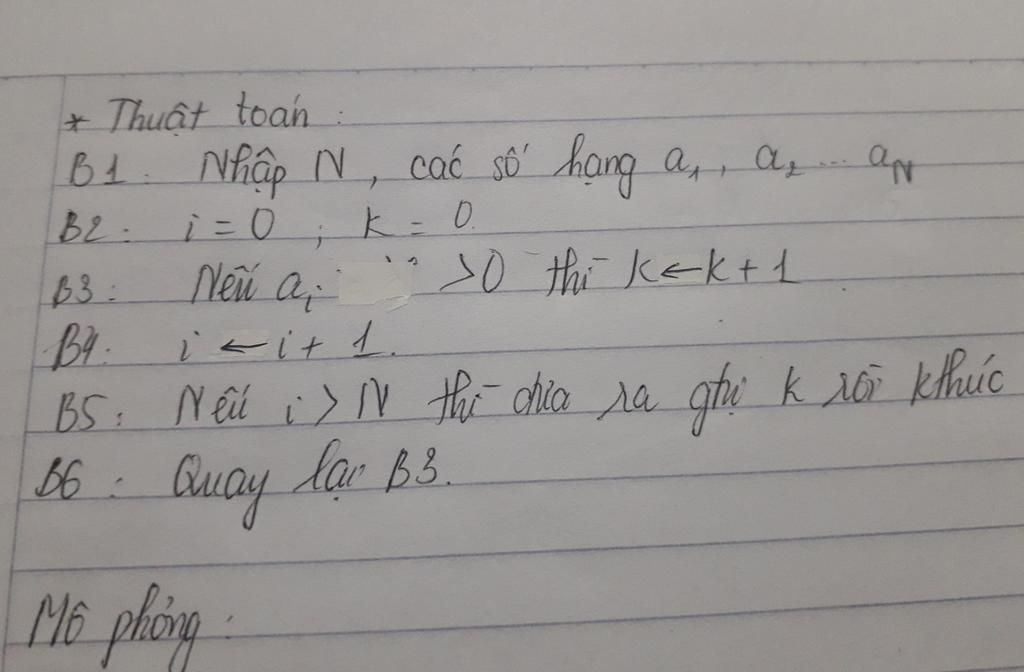 * Thuật toán :
B1 : Nhập N, các số hạng a₁, a₂ ... aN
B2 : i = 0 ; k = 0
B3 : Nếu aᵢ >0 thì k←k+1
B4 : i ← i + 1.
B5 : Nếu i > N thì đưa ra gtrị k rồi kthúc
B6 : Quay lại B3.
Mô phỏng :